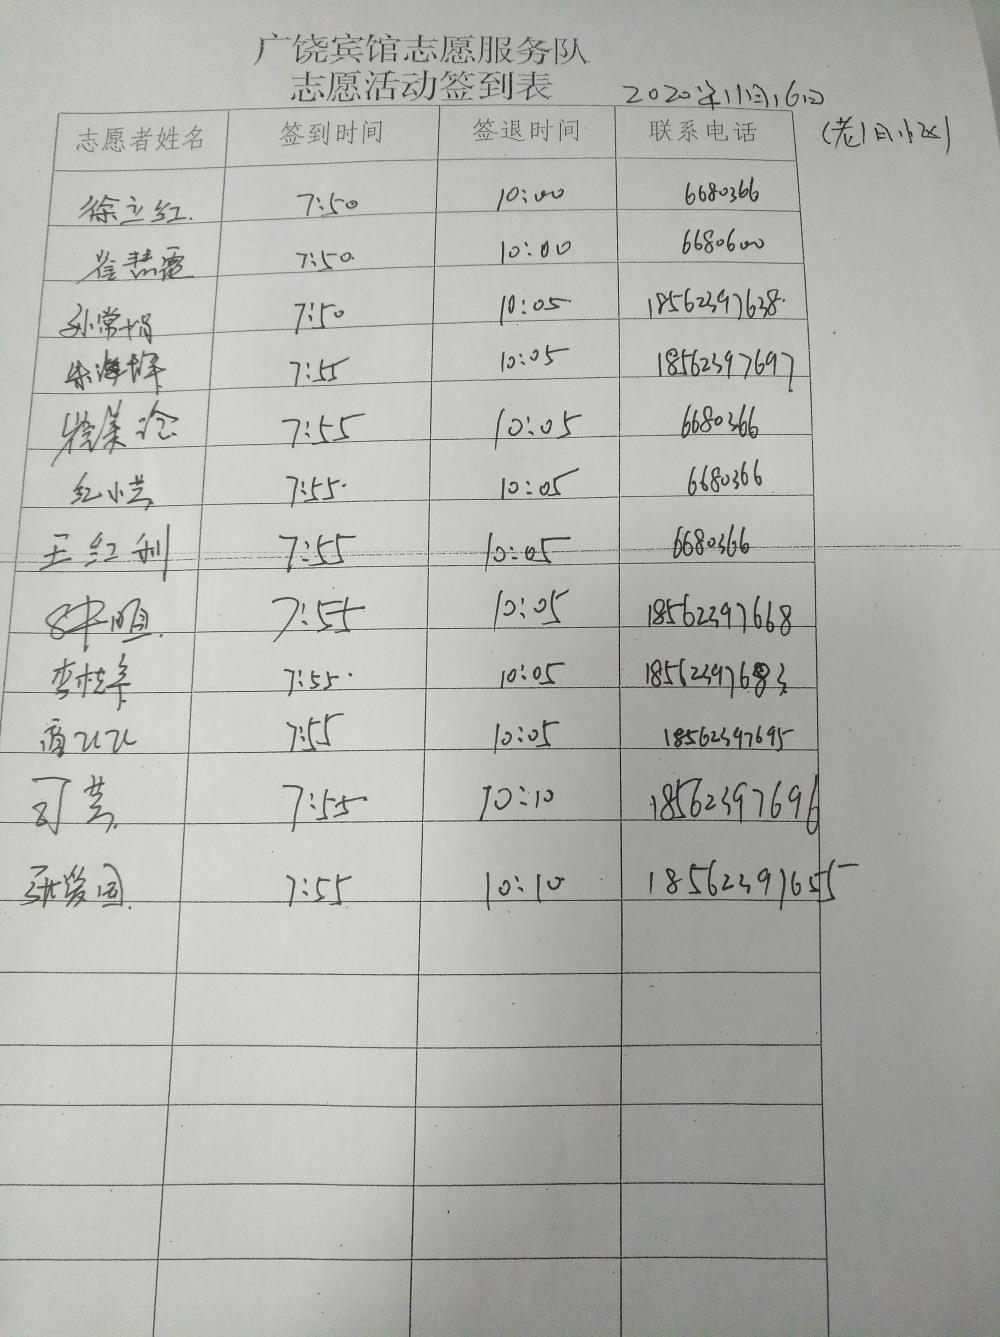 广饶宾馆志愿服务队
志愿活动签到表
2020年11月16日
(老旧小区)
志愿者姓名 签到时间 签退时间 联系电话
徐立红 7:50 10:00 6680366
崔慧霞 7:50 10:00 6680600
孙常娟 7:50 10:05 18562397638
朱海婷 7:55 10:05 18562397697
7:55 10:05 6680366
红小芸 7:55 10:05 6680366
王红利 7:55 10:05 6680366
7:55 10:05 18562397668
李桂华 7:55 10:05 18562397683
7:55 10:05 18562397695
7:55 10:10 18562397696
张爱国 7:55 10:10 18562397655